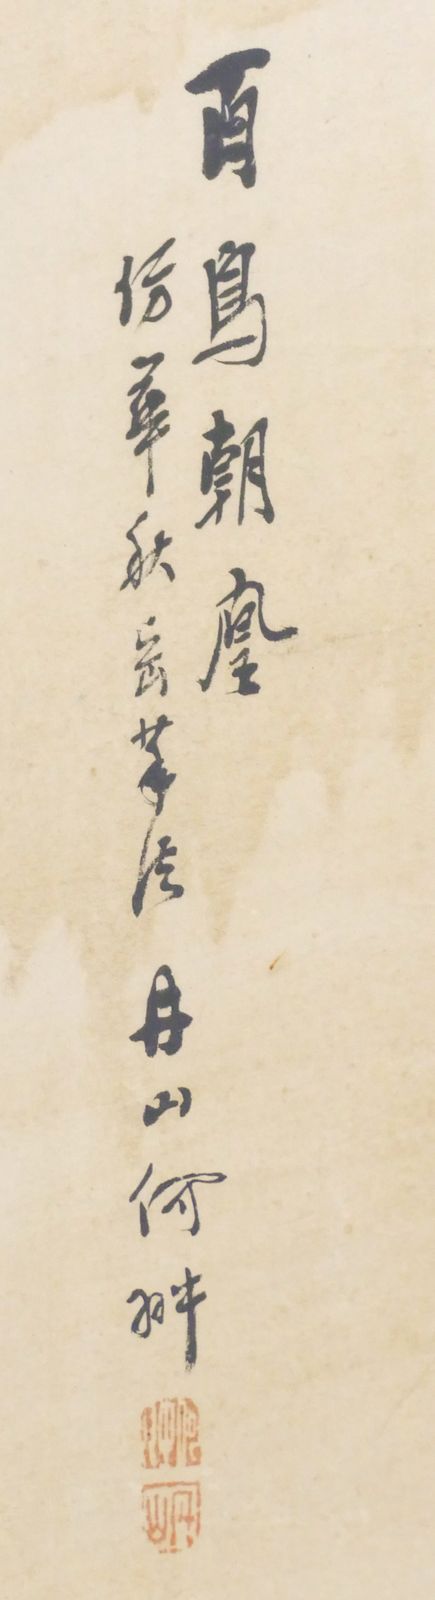 百鳥朝凰
仿華秋岳筆法 丹山何翀